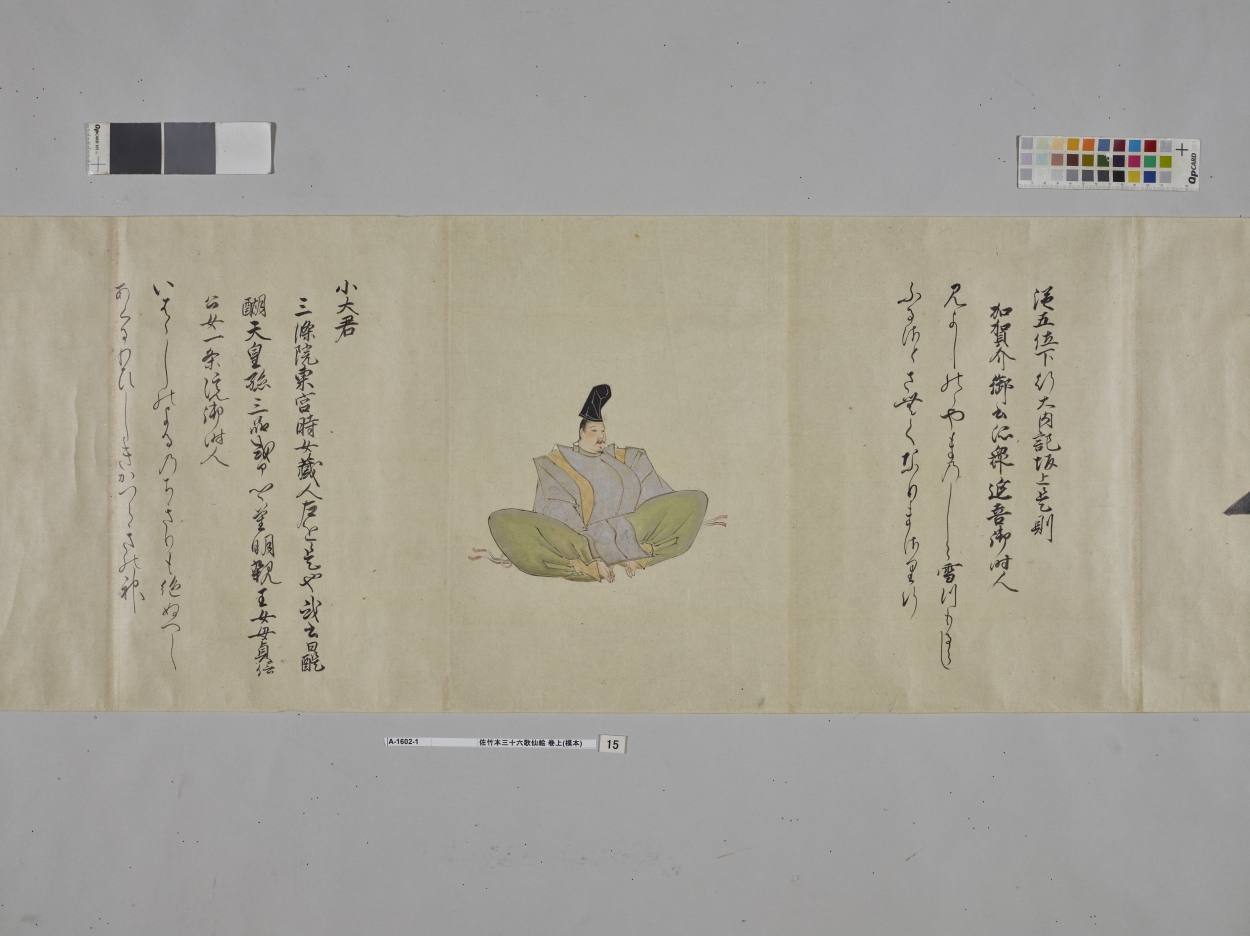 従五位下行大内記坂上是則
加賀介御書所衆延喜御時人
見よしのゝやまのしら雪つもるらし
ふるさとさむくなりまさり行
小大君
三條院東宮時女蔵人左近是也或書曰醍
醐天皇孫三品式部卿重明親王女母貞信
公女一条院御時人
いはゝしのよるのちきりも絶ぬへし
あくるわひしきかつらきの神
A-1602-1 佐竹本三十六歌仙絵 巻上(模本) 15
QPCARD
QPCARD